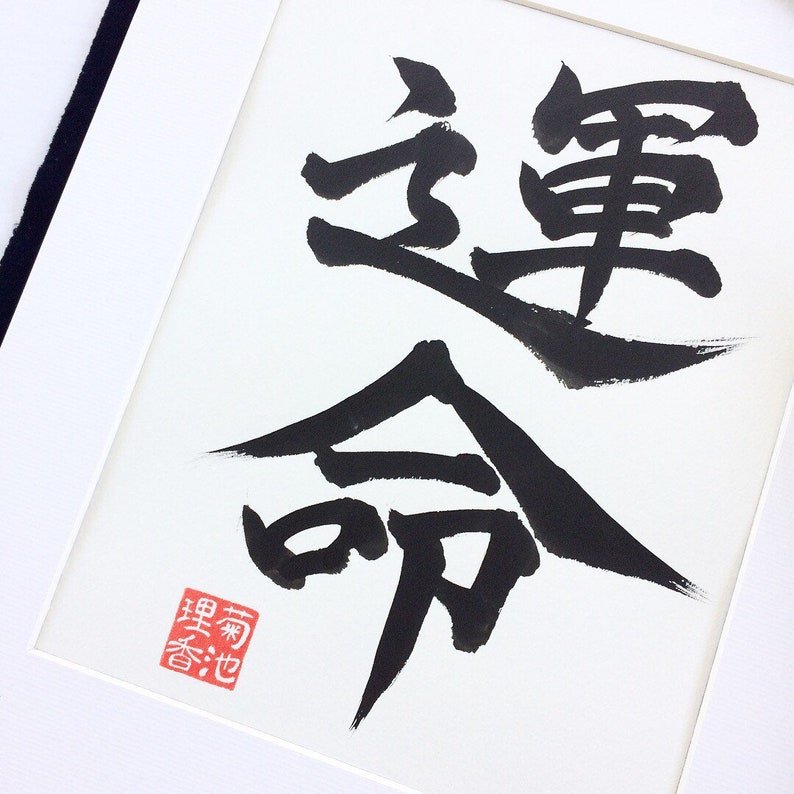 運命
菊池
理香